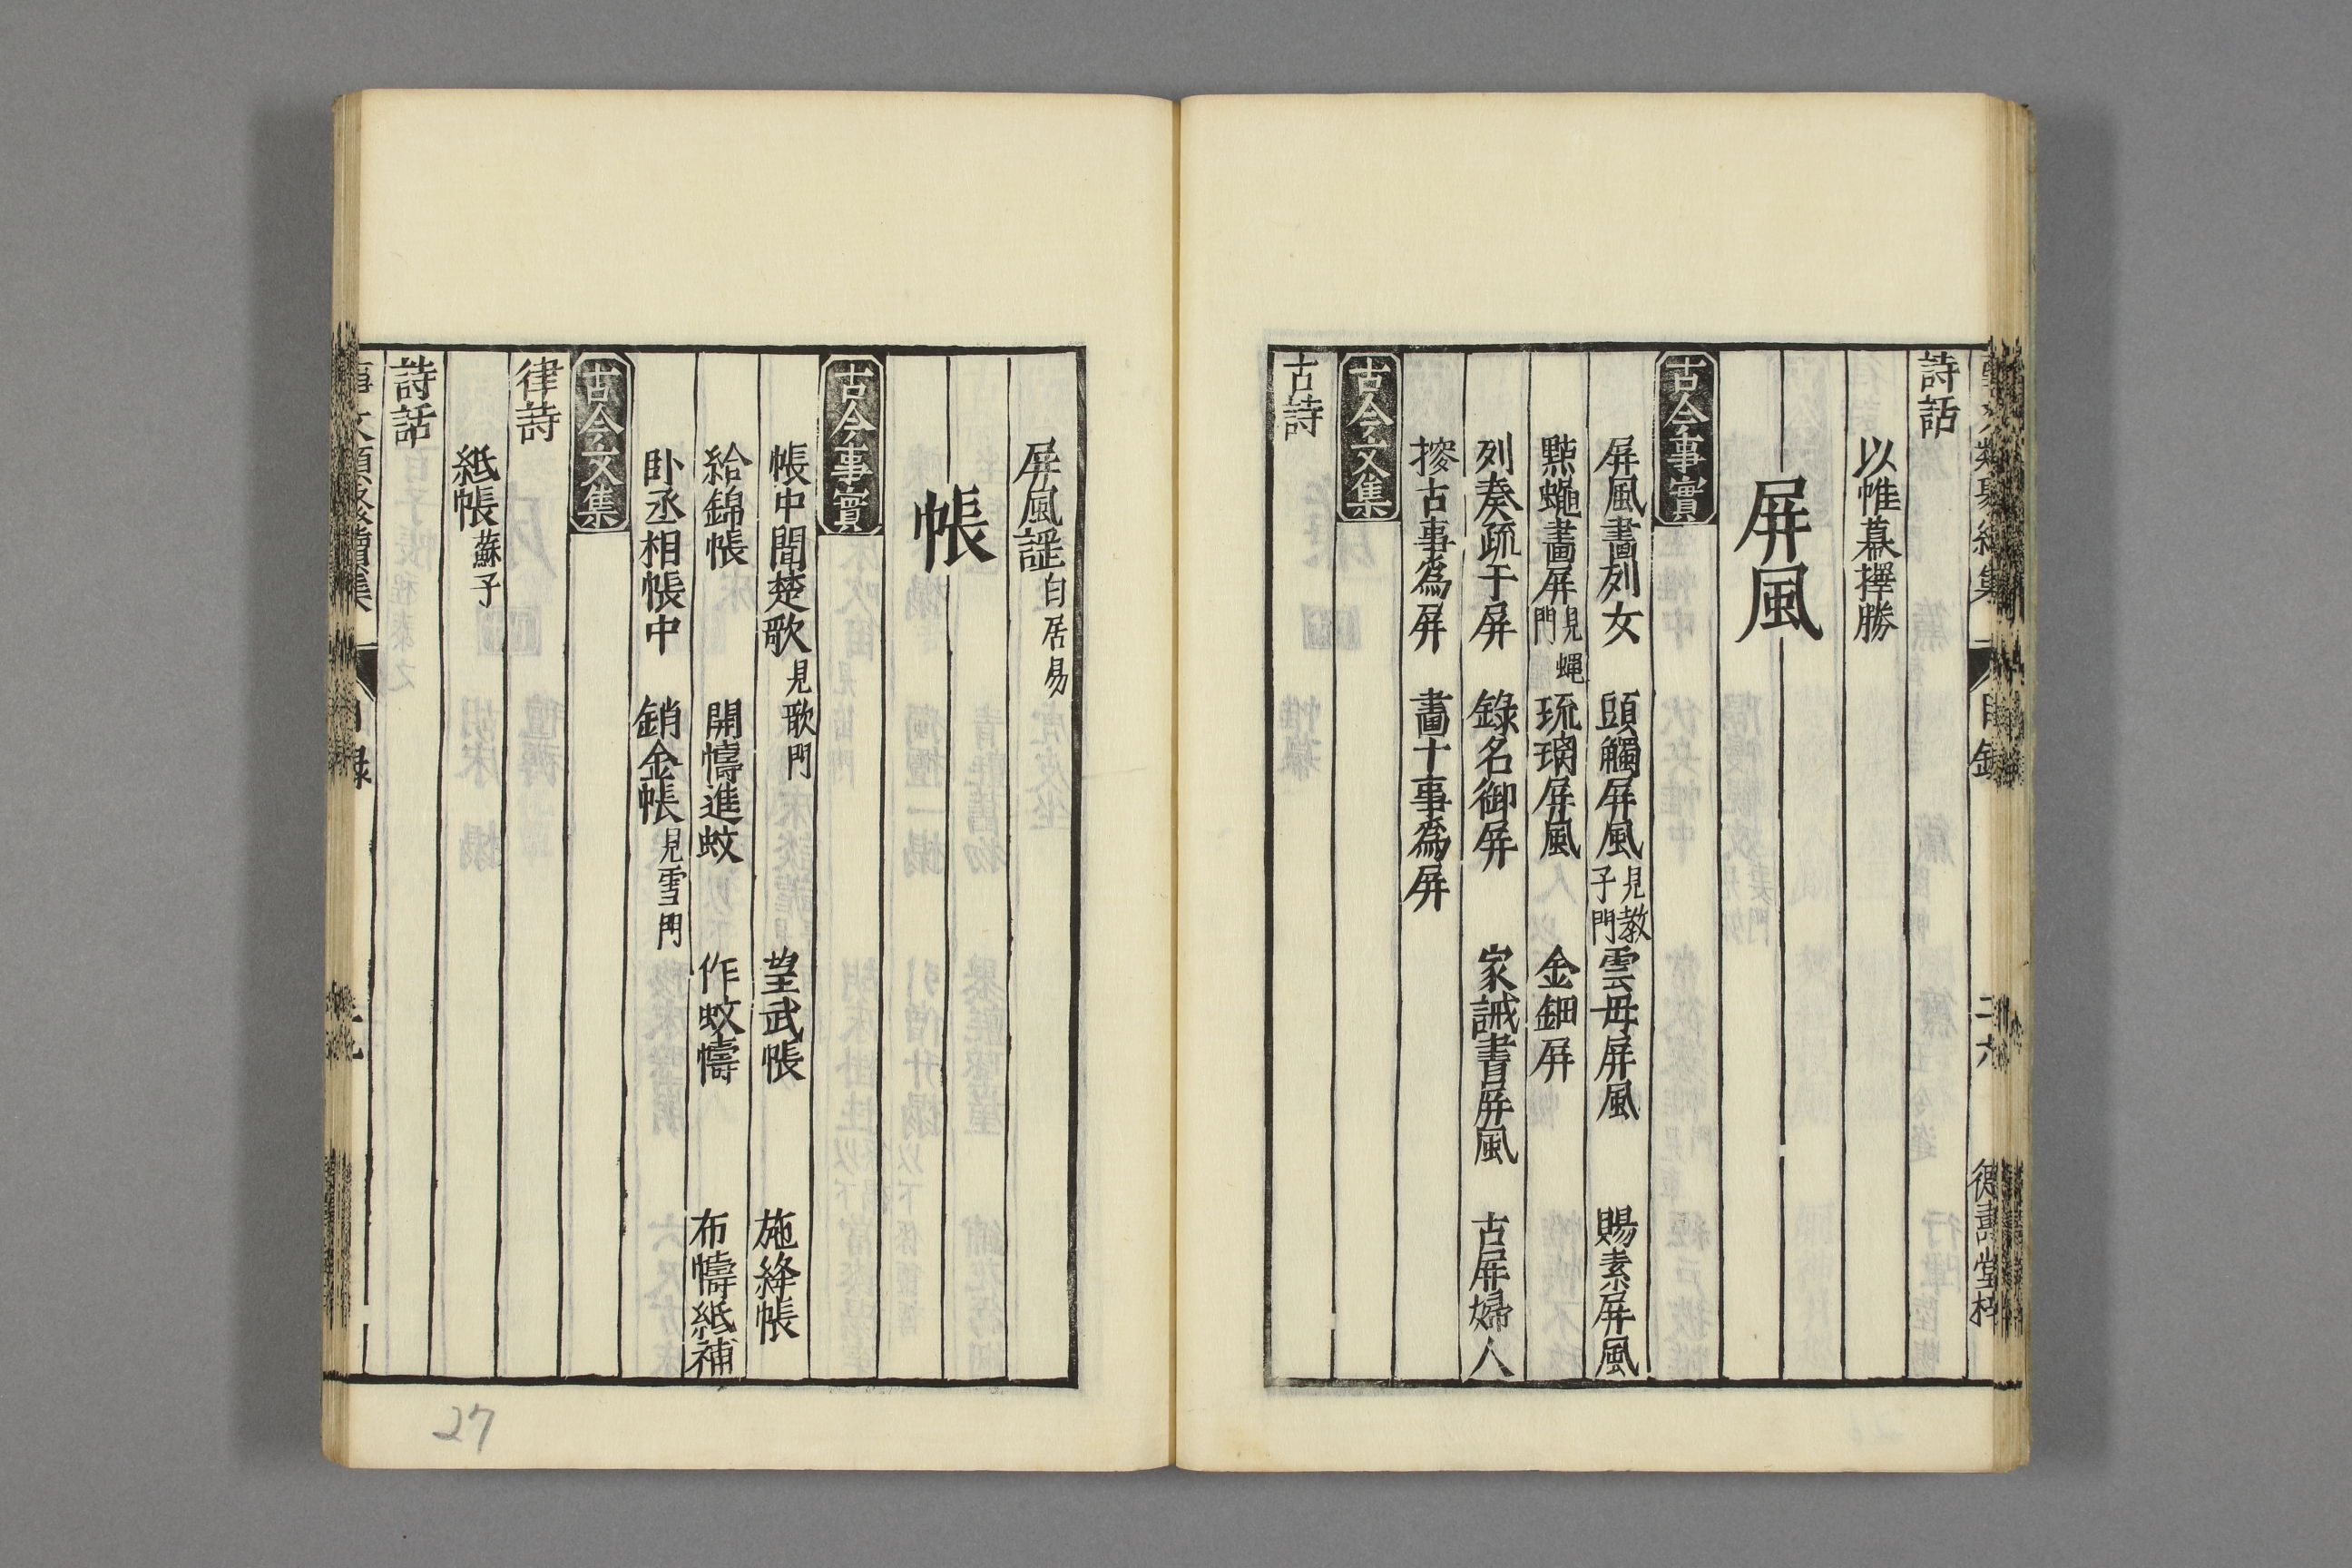 詩話
以帷幕擇勝
屏風
古今事實
屏風畫列女 頭觸屏風見教子門 雲母屏風 賜素屏風
點蠅畫屏見蠅門 琉璃屏風 金鈿屏
列奏疏于屏 錄名御屏 家誡書屏風 古屏婦人
㨯古事爲屏 畫十事爲屏
古今文集
古詩
屏風謡白居易
帳
古今事實
帳中聞楚歌見歌門 望武帳 施絳帳
給錦帳 開幬進蚊 作蚊幬 布幬紙補
卧丞相帳中 銷金帳見雪門
古今文集
律詩
紙帳蘇子
詩話
27